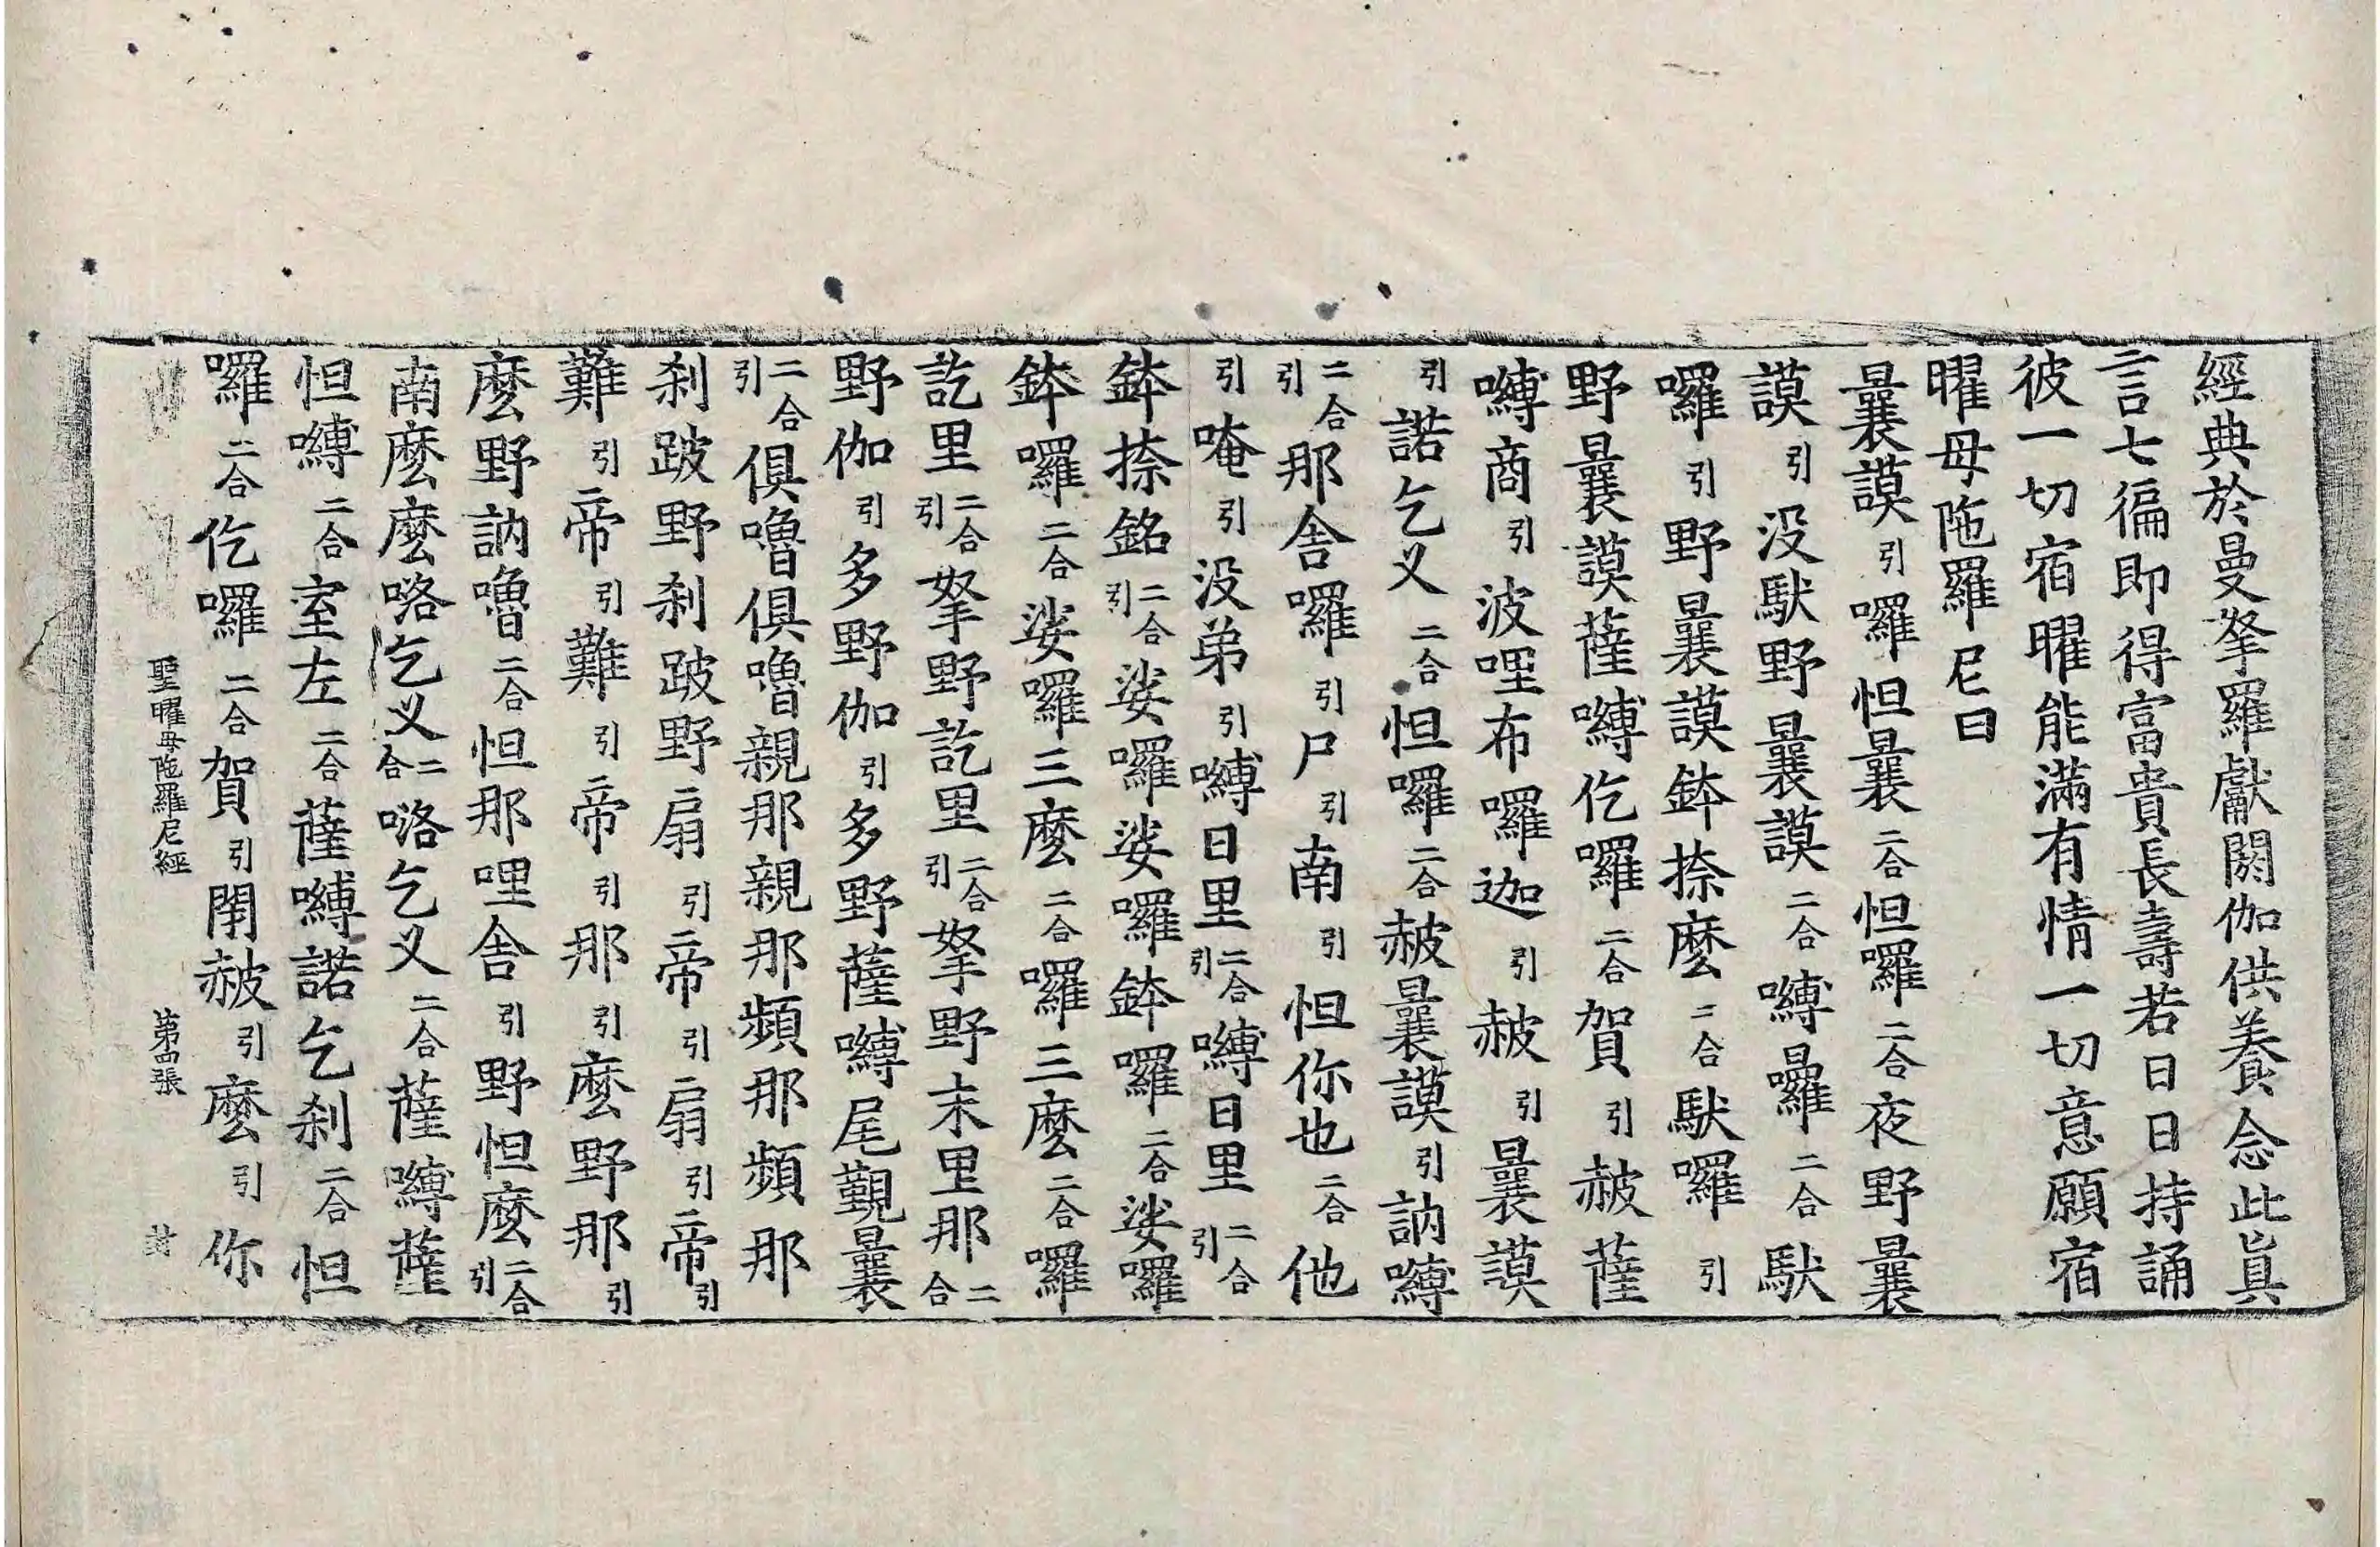 經典於曼拏羅獻閼伽供養念此真
言七徧即得富貴長壽若日日持誦
彼一切宿曜能滿有情一切意願宿
曜母陁羅尼曰
曩謨引囉怛曩二合怛囉二合夜野曩
謨引没馱野曩謨二合嚩曩囉二合馱
囉引野曩謨鉢捺麽二合馱囉引
野曩謨薩嚩仡囉二合賀引赧薩
嚩商引波哩布囉迦引赧引曩謨
引諾乞义二合怛囉二合赧曩謨引訥嚩
二合引那舍囉引尸引南引怛你也二合他
引唵引没弟引嚩日里二合引嚩日里二合引
鉢捺銘二合引娑囉娑囉鉢囉二合娑囉
鉢囉二合娑囉三麽二合囉三麽二合囉
訖里二合引拏野訖里二合引拏野末里那二合
野伽引多野伽引多野薩嚩尾覲曩
二合引俱嚕俱嚕親那親那頻那頻那
刹跛野刹跛野扇引帝引扇引帝引
難引帝引難引帝引那引麽野那引
麽野訥嚕二合怛那哩舍引野怛麽二合引
南麽麽咯乞义二合咯乞义二合薩嚩薩
怛嚩二合室左二合薩嚩諾乞刹二合怛
囉二合仡囉二合賀引閉赧引麽引你
聖曜母陁羅尼經 第四張 封